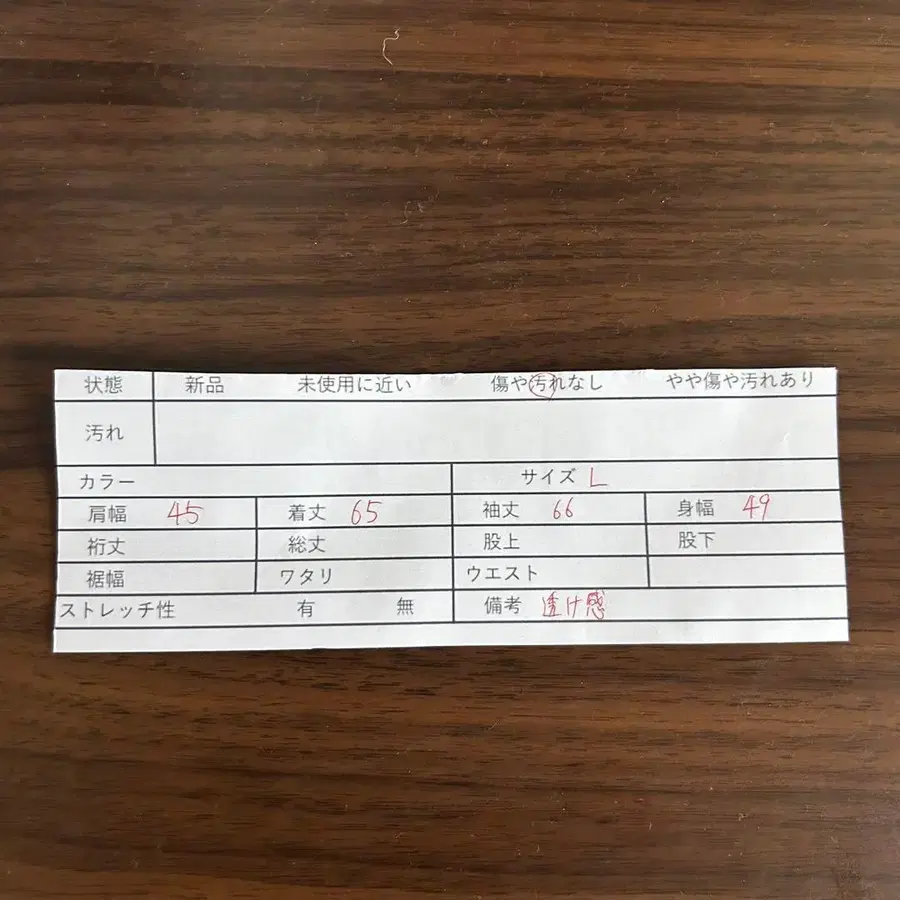 状態 新品 未使用に近い 傷や汚れなし やや傷や汚れあり
汚れ
カラー サイズ L
肩幅 45 着丈 65 袖丈 66 身幅 49
裄丈 総丈 股上 股下
裾幅 ワタリ ウエスト
ストレッチ性 有 無 備考 透け感